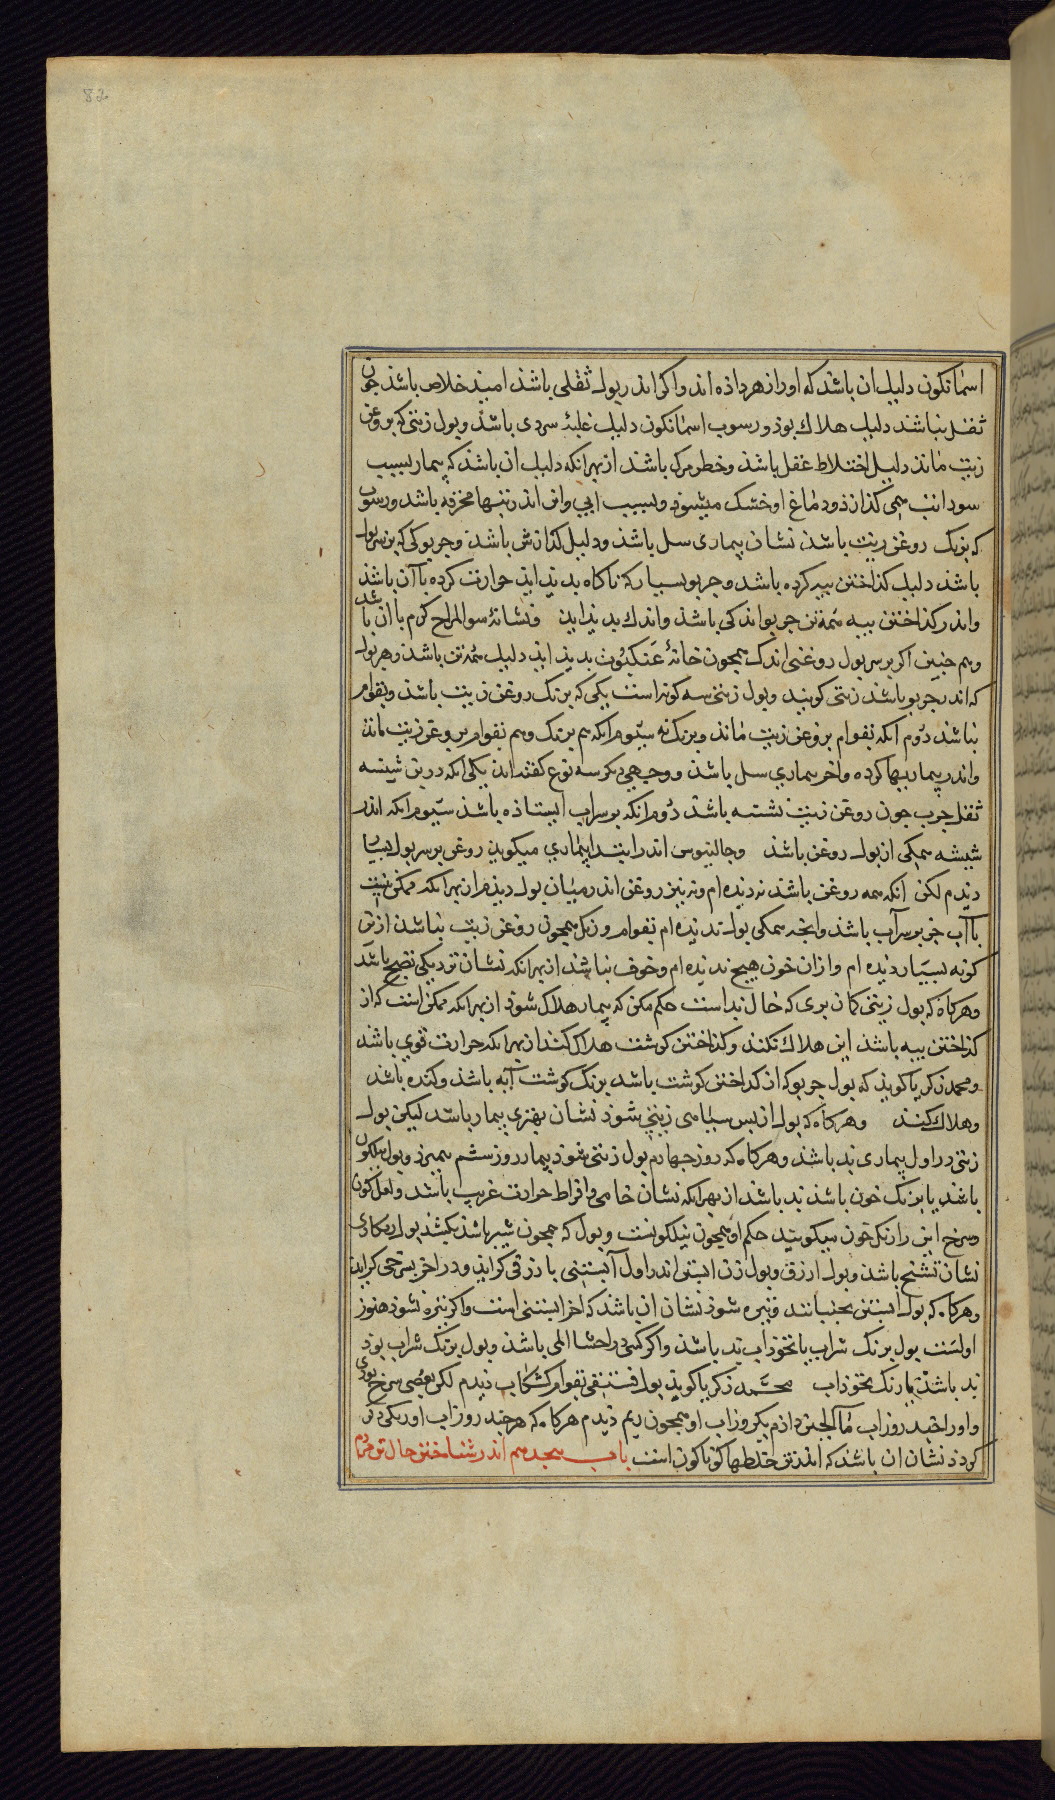 82
اسمانکون دلیل ان باشذ که اورا زهر داذه اند واکر اندر بول ثفلی باشذ امید خلاص باشذ جون
ثفل نباشد دلیل هلاک بوذ ورسوب اسمانکون دلیل غلبۀ سردی باشذ وبول زیتی که بروغن
زیت مانذ دلیل اختلاط عقل باشذ وخطر مرک باشد از بهر انکه دلیل ان باشذ که بیمار بسبب
که برنک روغن زیت باشذ نشان بیماری سل باشذ ودلیل کذازش باشذ وجربوکی که بر سر بول
باشذ دلیل کذاختن بیه کرده باشد وجربو بسیار که ناکاه بدید ایذ حرارت کرده با آن باشذ
واندر کذاختن بیه همه تن جربو اندکی باشذ واندک بدید ایذ ونشانۀ سوالمزاج کرم با ان باشد
وهم جنین اکر بر سر بول روغنی اندک همجون خانۀ عنکبوت بدید ایذ دلیل همه تن باشذ وهر بول
که اندر جربو باشذ زیتی کویند وبول زیتی سه کونه است یکی که برنک روغن زیت باشذ وبقوام
نباشذ دوم انکه بقوام بروغن زیت ماند وبرنک نه سیوم انکه هم برنک وهم بقوام بروغن زیت ماند
واندر بیماریها کرده واخر بیماری سل باشذ ووجهی دیکر سه نوع کفته اند یکی انکه در بن شیشه
ثفل جرب جون روغن زیت نشسته باشذ دوم انکه بر سر اب ایستاذه باشذ سیوم انکه اندر
شیشه همکی از بول روغن باشذ وجالینوس اندر ابیذیمیا میکوید روغن بر سر بول بسیار
دیدم لکن انکه همه روغن باشذ نه دیده ام ونه نیز روغن اندر میان بول دیدم از بهر انکه ممکن نیست
با آب جز بر سر آب باشذ وانجه همکی بول ندیده ام بقوام ورنک همجون روغن زیت نباشذ ازین
کونه بسیار دیده ام وازان خون هیج ندیده ام وخوف نباشذ از بهر انکه نشان نزدیکی نضج باشد
وهر کاه که بول زیتی کمان بری که حال بد است حکم مکن که بیمار هلاک شوذ از بهر انکه ممکن است که از
کذاختن بیه باشذ این هلاک نکند وکذاختن کوشت هلاک کند از بهر انکه حرارت قوی باشد
ومحمد زکریا کوید که بول جربو که از کداختن کوشت باشد برنک کوشت آبه باشذ وکنده باشد
وهلاک کند وهر کاه که بول از بس سیاهی زیتی شوذ نشان بهتری بیمار باشد لیکن بول
زیتی در اول بیماری بد باشذ وهر کاه که روز جهارم بول زیتی شوذ بیمار روز ششم بمیرد وبول نیلکون
باشد یا برنک خون باشذ بد باشد از بهر انکه نشان خامی وافراط حرارت غریب باشد ولعل کون
وسرخ این را رنک خون میکویند حکم او همجون نیلکونست وبول که همجون شیر باشذ بکشد
نشان تشنج باشذ وبول ازرق وبول زن ابستن اندر اول آبستنی بازرقی کراید ودر اخر بسرخی کراید
وهر کاه که بول ابستن بجنبانند وتیره شوذ نشان ان باشذ که اخر ابستنی است واکر تیره نشوذ هنوز
اولست بول برنک شراب یا نخوذاب بد باشذ واکر کسی را در احشا المی باشذ وبول برنک شراب بوذ
بد باشذ یا برنک نخوذاب محمد زکریا کوید بول فستقی بقوام کشکاب دیدم لکن بعضی سرخ بوذ
واورا جند روز اب ماالجبن داذم یکروز اب او همجون ریم دیدم هر کاه که هر جند روز اب او رنکی دیکر
کردد نشان ان باشذ که اندر تن خلطها کوناکون است باب هجدهم اندر شناختن حال تن مردم